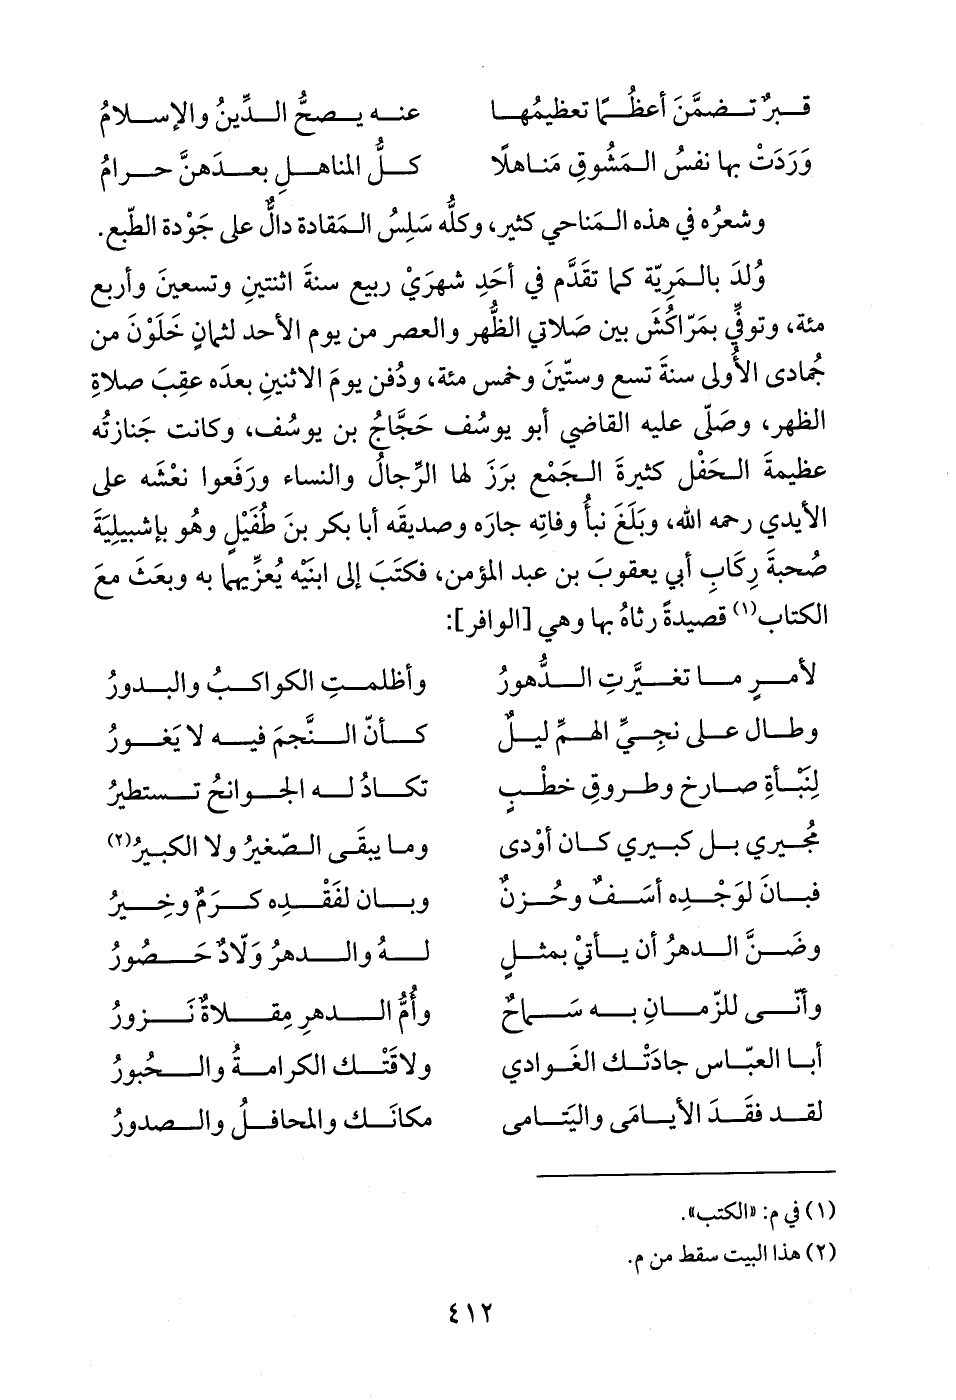 قبرٌ تضمَّنَ أعظُمًا تعظيمُها عنه يصحُّ الدِّينُ والإسلامُ
وَرَدَتْ بها نفسُ المَشُوقِ مَناهلًا كلُّ المناهلِ بعدَهنَّ حرامُ
وشعرُه في هذه المَناحي كثير، وكلُّه سَلِسُ المَقادة دالٌّ على جَوْدة الطَّبع.
وُلدَ بالمَرِيّة كما تقدَّم في أحَدِ شهرَيْ ربيع سنةَ اثنتينِ وتسعينَ وأربع
مئة، وتوفِّي بمَرّاكُشَ بين صَلاتيِ الظُّهر والعصر من يوم الأحد لثمانٍ خَلَوْنَ من
جُمادى الأولى سنةَ تسع وستّينَ وخمس مئة، ودُفن يومَ الاثنينِ بعدَه عقِبَ صلاةِ
الظهر، وصَلّى عليه القاضي أبو يوسُف حَجَّاجُ بن يوسُف، وكانت جَنازتُه
عظيمةَ الحَفْل كثيرةَ الجَمْع برَزَ لها الرِّجالُ والنساء ورَفَعوا نعْشَه على
الأيدي رحمه الله، وبَلَغَ نبأُ وفاتِه جارَه وصديقَه أبا بكر بنَ طُفَيْلٍ وهُو بإشبيلِيَةَ
صُحبةَ رِكَابِ أبي يعقوبَ بن عبد المؤمن، فكتَبَ إلى ابنَيْه يُعزِّيهما به وبعَثَ معَ
الكتاب(١) قصيدةً رثاهُ بها وهي [الوافر]:
لأمرٍ ما تغيَّرتِ الدُّهورُ وأظلمتِ الكواكبُ والبدورُ
وطال على نجِيِّ الهمِّ ليلٌ كأنّ النَّجمَ فيه لا يَغورُ
لِنَبْأةِ صارخ وطروقِ خطْبٍ تكادُ له الجوانحُ تستطيرُ
مُجيري بل كبيري كان أوْدى وما يبقَى الصّغيرُ ولا الكبيرُ(٢)
فبانَ لوَجْدِه أسَفٌ وحُزنٌ وبان لفَقْدِه كرَمٌ وخِيرُ
وضَنَّ الدهرُ أن يأتيْ بمثلٍ لهُ والدهرُ وَلّادٌ حَصُورُ
وأنّى للزّمانِ به سَماحٌ وأُمُّ الدهرِ مِقلاةٌ نَزورُ
أبا العبّاس جادَتْك الغَوادي ولاقَتْك الكرامةُ والحُبورُ
لقد فقَدَ الأيامَى واليَتامى مكانَك والمحافلُ والصدورُ
(١) في م: «الكتب».
(٢) هذا البيت سقط من م.
٤١٢